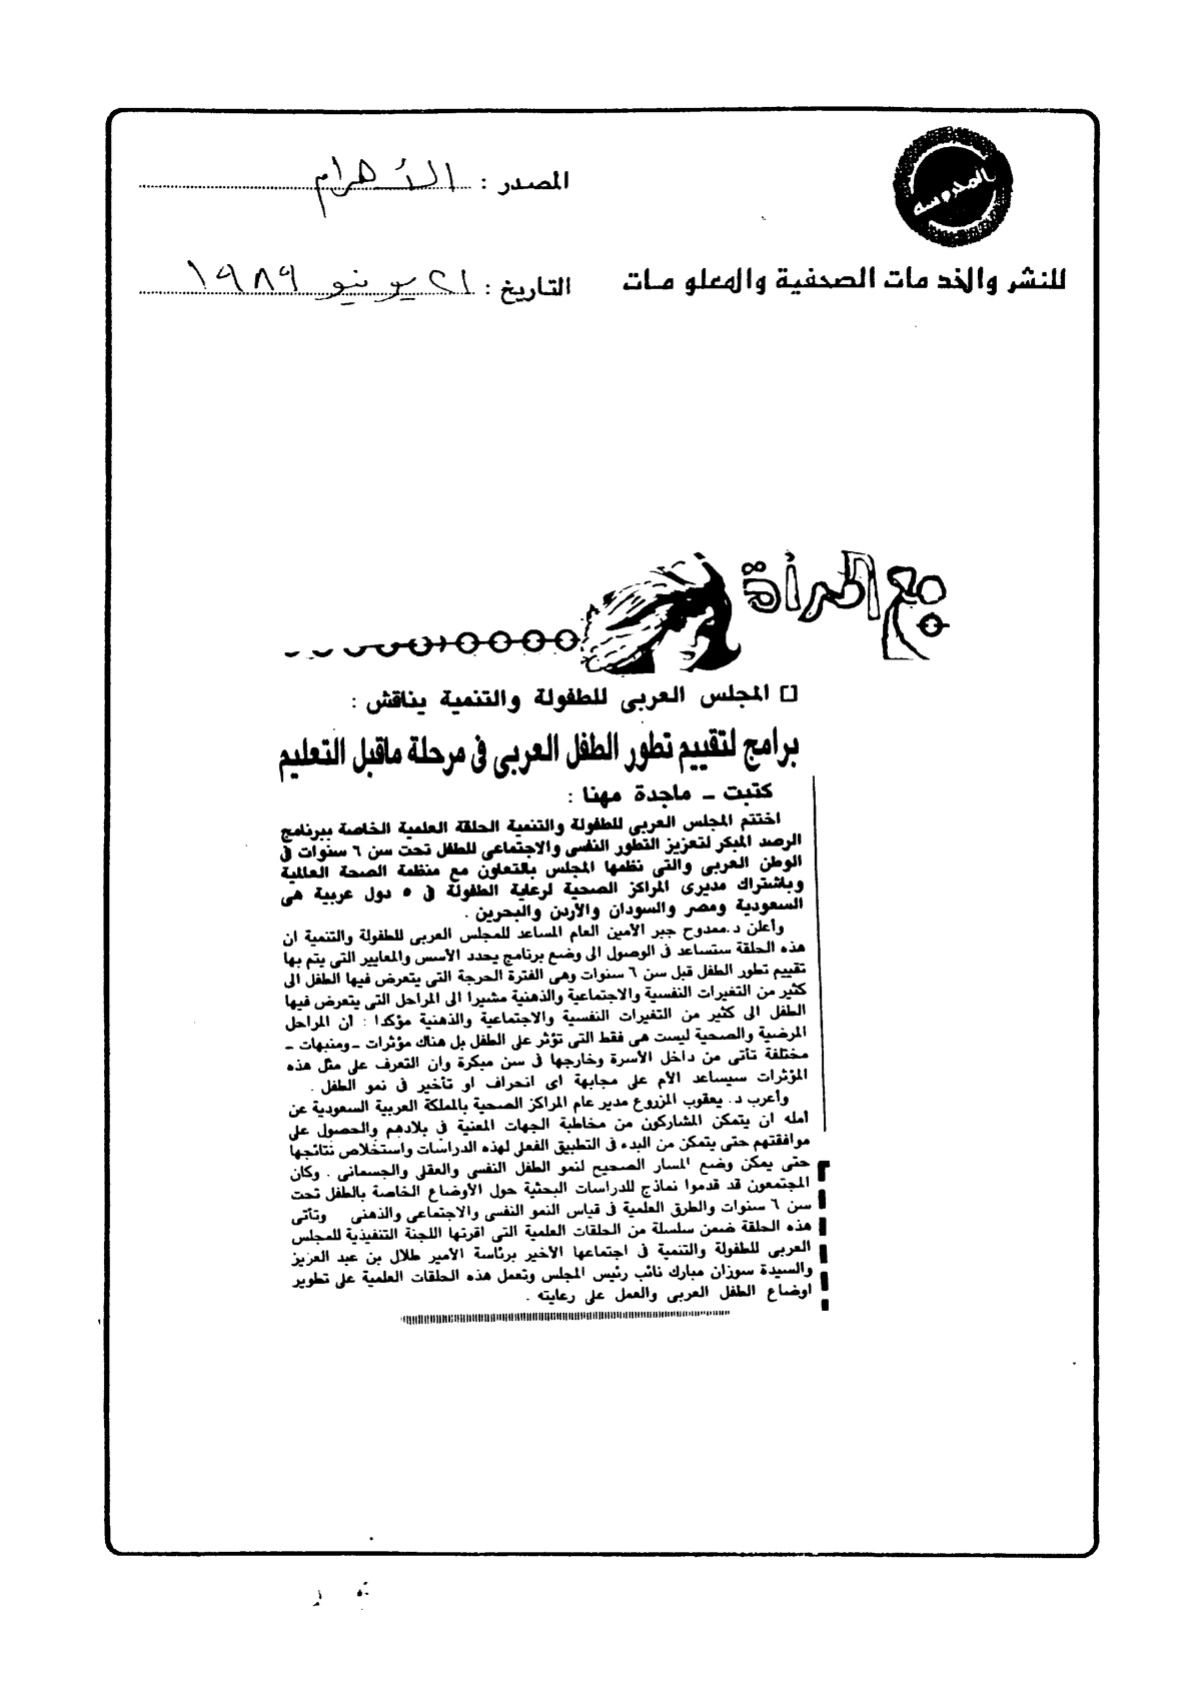 المحروسه
المصدر : الأهرام
للنشر والخدمات الصحفية والمعلومات
التاريخ : ٢١ يونيو ١٩٨٩
مع المرأة
المجلس العربى للطفولة والتنمية يناقش :
برامج لتقييم تطور الطفل العربى فى مرحلة ماقبل التعليم
كتبت ــ ماجدة مهنا :
اختتم المجلس العربى للطفولة والتنمية الحلقة العلمية الخاصة ببرنامج
الرصد المبكر لتعزيز التطور النفسى والاجتماعى للطفل تحت سن ٦ سنوات فى
الوطن العربى والتى نظمها المجلس بالتعاون مع منظمة الصحة العالمية
وباشتراك مديرى المراكز الصحية لرعاية الطفولة فى ٥ دول عربية هى
السعودية ومصر والسودان والأردن والبحرين .
وأعلن د.ممدوح جبر الأمين العام المساعد للمجلس العربى للطفولة والتنمية ان
هذه الحلقة ستساعد فى الوصول الى وضع برنامج يحدد الأسس والمعايير التى يتم بها
تقييم تطور الطفل قبل سن ٦ سنوات وهى الفترة الحرجة التى يتعرض فيها الطفل الى
كثير من التغيرات النفسية والاجتماعية والذهنية مشيرا الى المراحل التى يتعرض فيها
الطفل الى كثير من التغيرات النفسية والاجتماعية والذهنية مؤكدا : أن المراحل
المرضية والصحية ليست هى فقط التى تؤثر على الطفل بل هناك مؤثرات ــ ومنبهات ــ
مختلفة تأتى من داخل الأسرة وخارجها فى سن مبكرة وان التعرف على مثل هذه
المؤثرات سيساعد الأم على مجابهة اى انحراف او تأخير فى نمو الطفل .
وأعرب د. يعقوب المزروع مدير عام المراكز الصحية بالمملكة العربية السعودية عن
أمله ان يتمكن المشاركون من مخاطبة الجهات المعنية فى بلادهم والحصول على
موافقتهم حتى يتمكن من البدء فى التطبيق الفعلى لهذه الدراسات واستخلاص نتائجها
حتى يمكن وضع المسار الصحيح لنمو الطفل النفسى والعقلى والجسمانى . وكان
المجتمعون قد قدموا نماذج للدراسات البحثية حول الأوضاع الخاصة بالطفل تحت
سن ٦ سنوات والطرق العلمية فى قياس النمو النفسى والاجتماعى والذهنى وتأتى
هذه الحلقة ضمن سلسلة من الحلقات العلمية التى اقرتها اللجنة التنفيذية للمجلس
العربى للطفولة والتنمية فى اجتماعها الأخير برئاسة الأمير طلال بن عبد العزيز
والسيدة سوزان مبارك نائب رئيس المجلس وتعمل هذه الحلقات العلمية على تطوير
اوضاع الطفل العربى والعمل على رعايته .